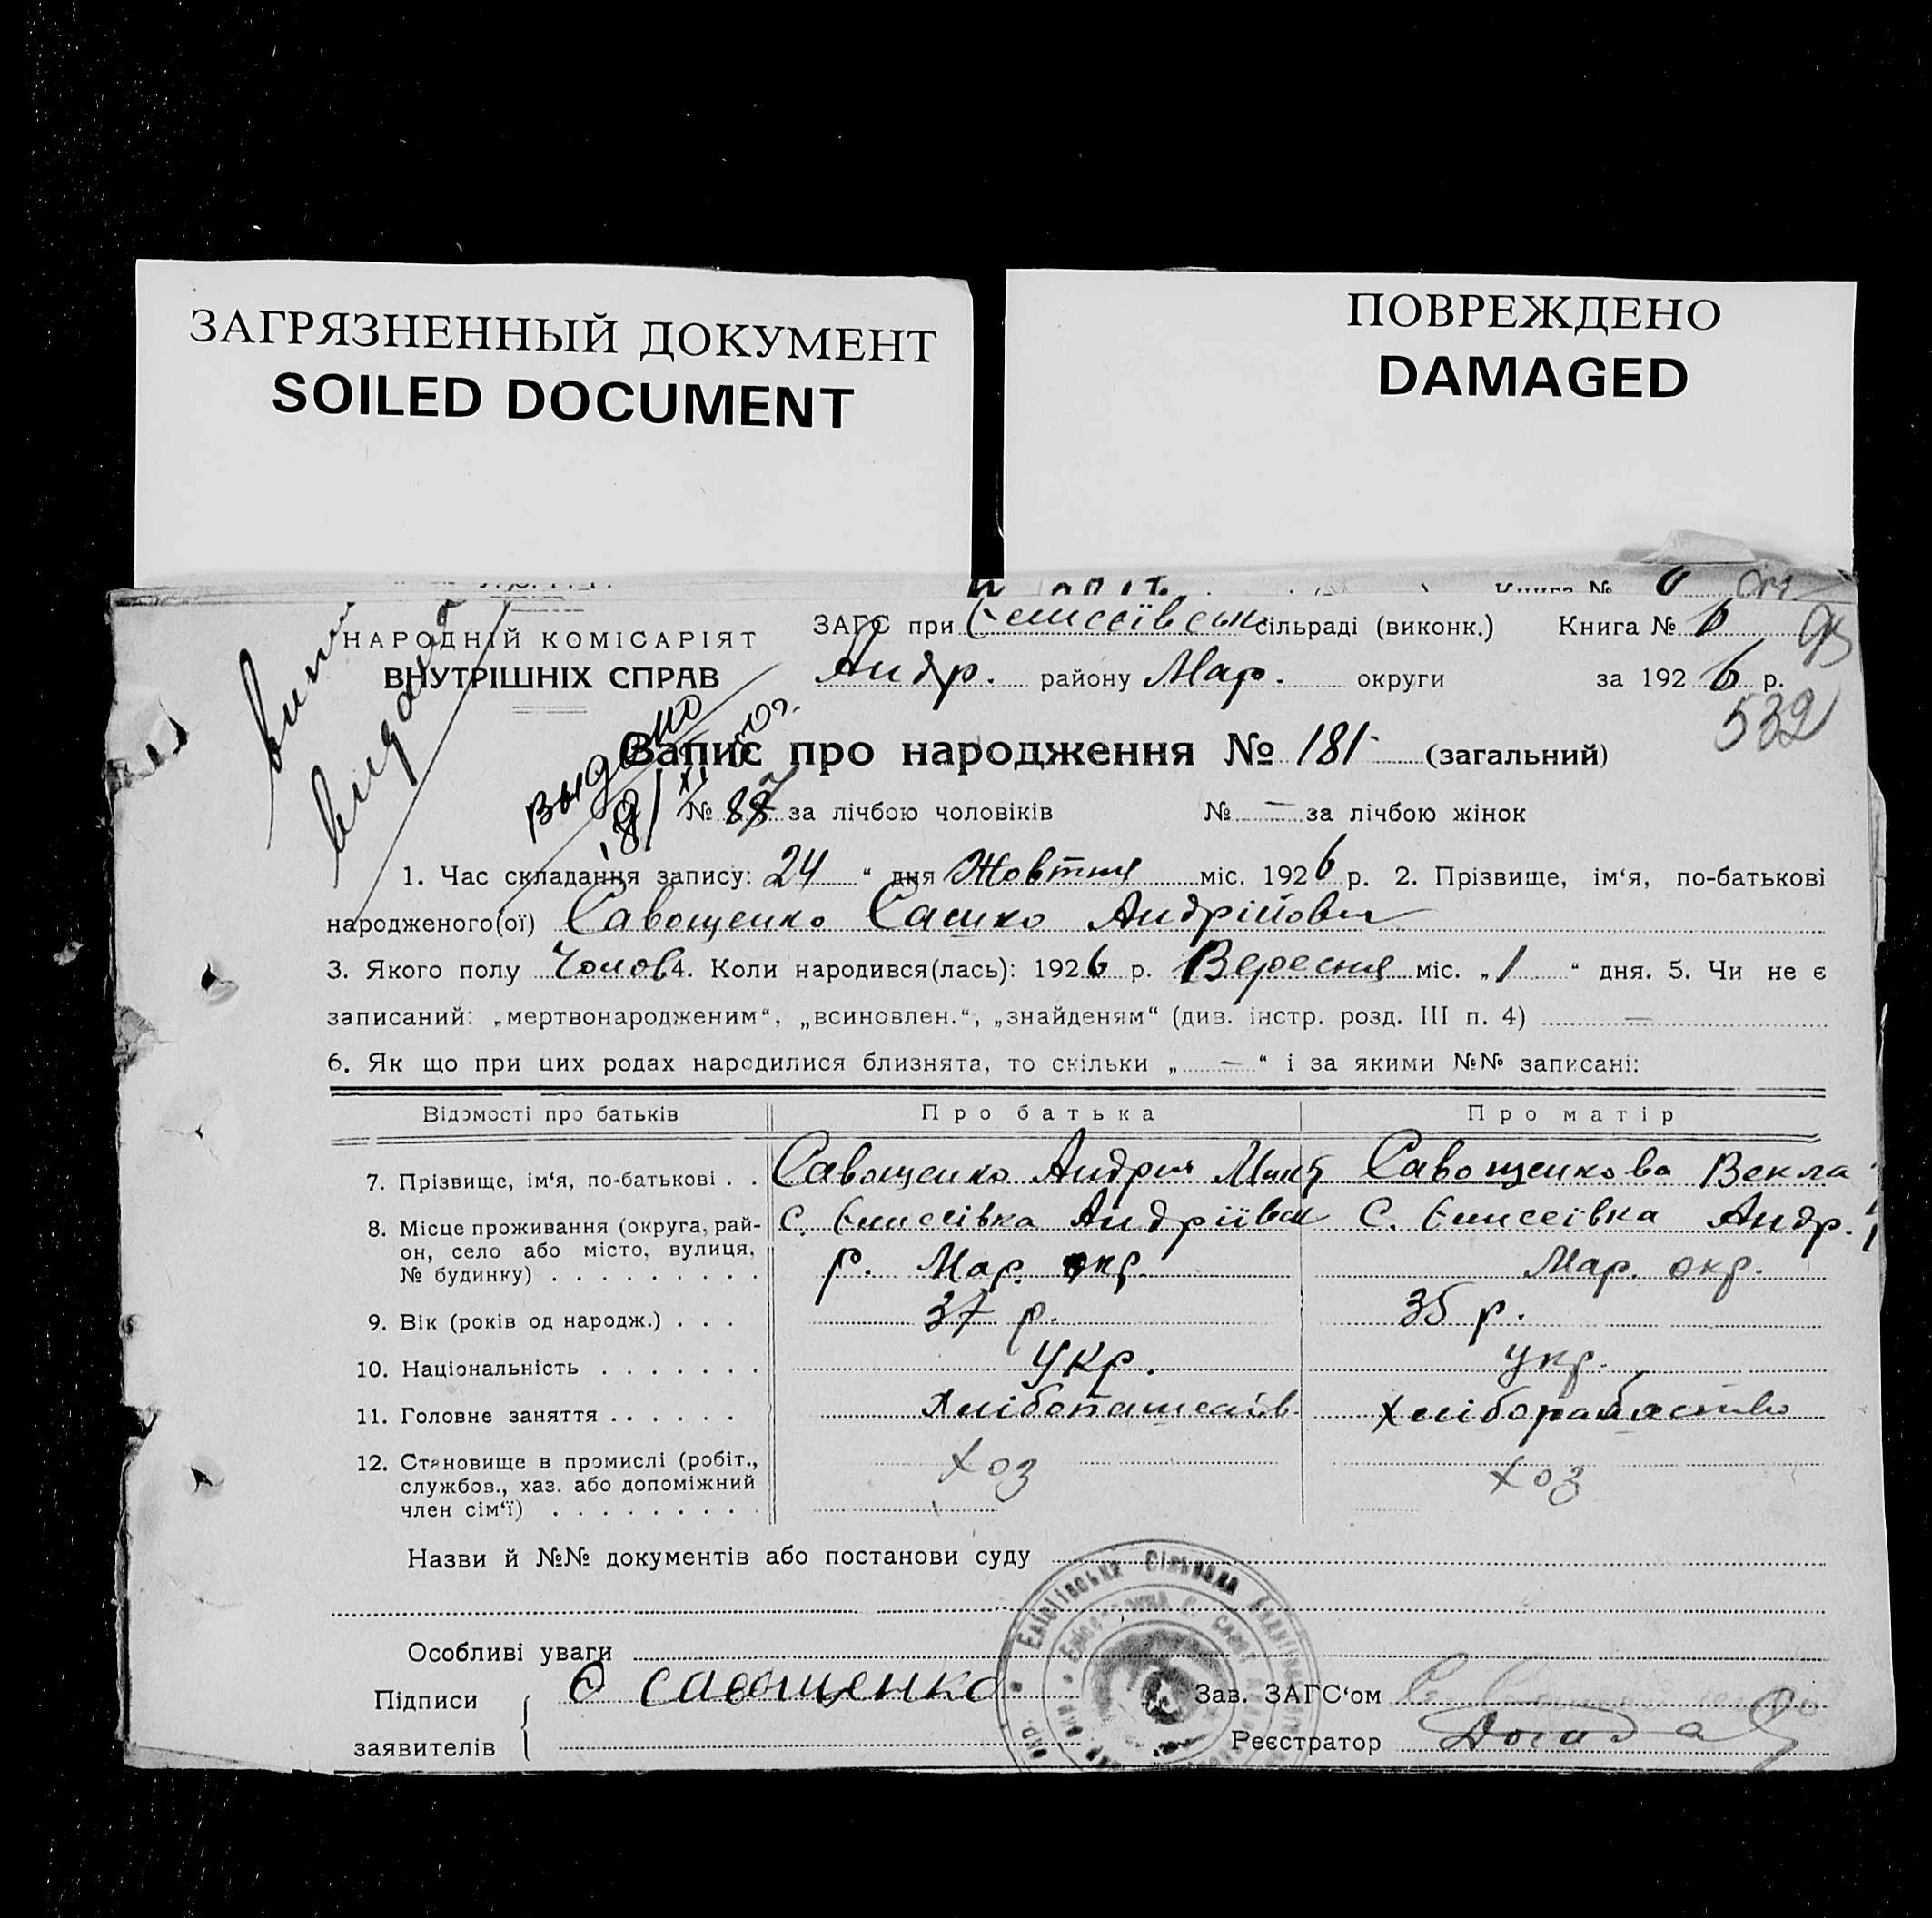 ЗАГРЯЗНЕННЫЙ ДОКУМЕНТ
SOILED DOCUMENT
ПОВРЕЖДЕНО
DAMAGED
НАРОДНІЙ КОМІСАРІЯТ
ВНУТРІШНІХ СПРАВ
ЗАГС при Єлисеївськ. сільраді (виконк.) Книга № 6
Андр. району Мар. округи за 1926 р.
93
532
видано
Запис про народження № 181 (загальний)
№ 87 за лічбою чоловіків № — за лічбою жінок
1. Час складання запису: 24 “ дня Жовтня міс. 1926 р. 2. Прізвище, ім‘я, по-батькові
народженого(ої) Савощенко Сашко Андрійович
3. Якого полу Чолов 4. Коли народився(лась): 1926 р. Вересня міс. „1“ дня. 5. Чи не є
записаний: „мертвонародженим“, „всиновлен.“, „знайденям“ (див. інстр. розд. III п. 4) —
6. Як що при цих родах народилися близнята, то скільки „—“ і за якими №№ записані:
Відомості про батьків Про батька Про матір
7. Прізвище, ім‘я, по-батькові . . Савощенко Андрій Савощенкова Векла
8. Місце проживання (округа, рай- с. Єлисеївка Андріївськ с. Єлисеївка Андр.
он, село або місто, вулиця, р. Мар. окр. Мар. окр.
№ будинку) . . . . . . . . .
9. Вік (років од народж.) . . . 37 р. 35 р.
10. Національність . . . . . . . Укр. укр.
11. Головне заняття . . . . . .
12. Становище в промислі (робіт., хоз хоз
службов., хаз. або допоміжний
член сім‘ї) . . . . . . . . .
Назви й №№ документів або постанови суду
Особливі уваги
Підписи Савощенко Зав. ЗАГС‘ом
заявителів Реєстратор